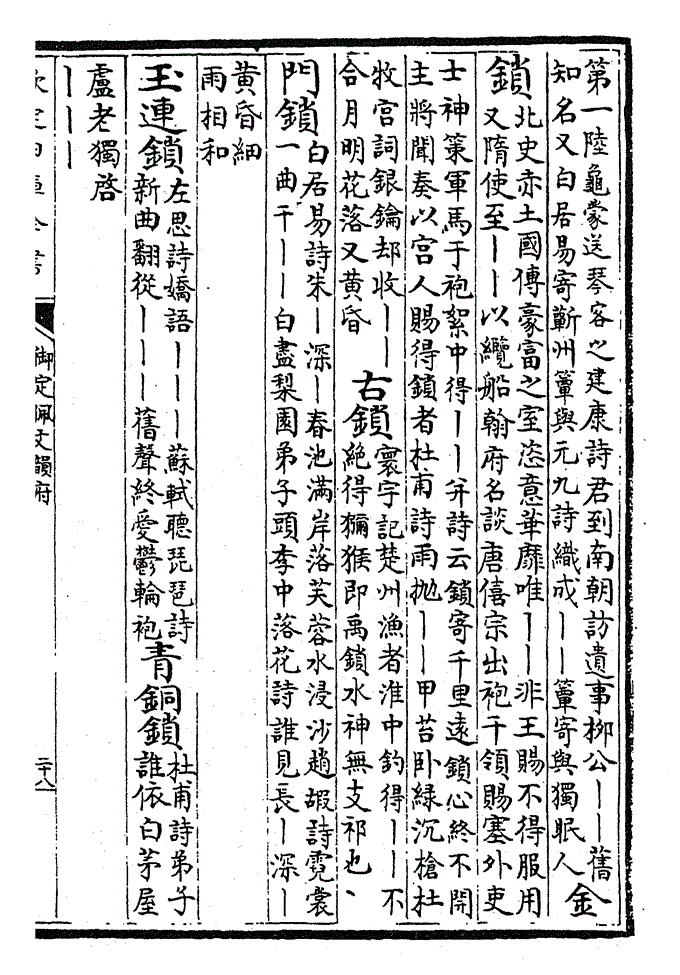 第一陸龜蒙送琴客之建康詩君到南朝訪遺事柳公｜｜舊
知名又白居易寄蘄州簟與元九詩織成｜｜簟寄與獨眠人
金
鎖
北史赤土國傳豪富之室恣意華靡唯｜｜非王賜不得服用
又隋使至｜｜以纜船翰府名談唐僖宗出袍千領賜塞外吏
士神策軍馬于袍絮中得｜｜并詩云鎖寄千里遠鎖心終不開
主將聞奏以宮人賜得鎖者杜甫詩雨拋｜｜甲苔卧綠沉槍杜
牧宮詞銀鑰却收｜｜
合月明花落又黃昏
右鎖
寰宇記楚州漁者淮中釣得｜｜不
絶得獼猴即禹鎖水神無支祁也、
門鎖
白居易詩朱｜深｜春池滿岸落芙蓉水浸沙趙嘏詩霓裳
一曲千｜｜白盡梨園弟子頭李中落花詩誰見長｜深｜
黃昏細
雨相和
玉連鎖
左思詩嬌語｜｜｜蘇軾聽琵琶詩
新曲翻從｜｜｜舊聲終愛鬱輪袍
青銅鎖
杜甫詩弟子
誰依白茅屋
盧老獨啓
｜｜｜
欽定四庫全書
御定佩文韻府
二十八